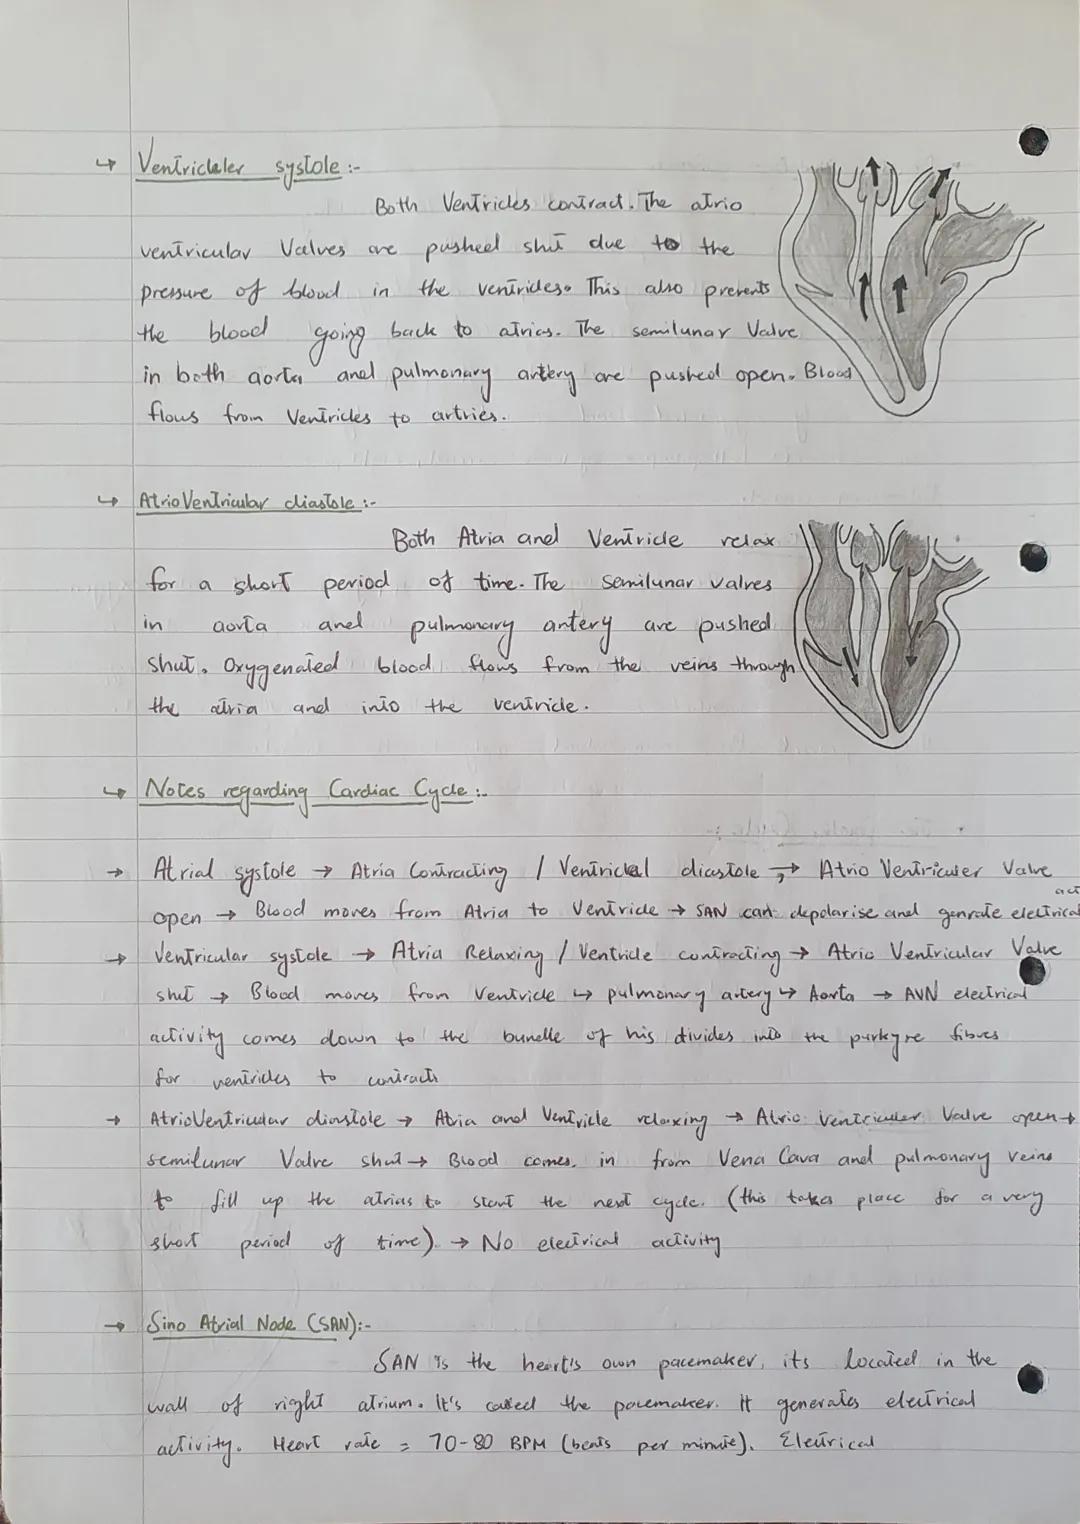 ↳ Ventricleler systole :-
Both Ventricles contract. The atrio
ventricular Valves are pushed shut due to the
pressure of blood in the ventricles. This also prevents
the blood going back to atrias. The semilunar Valve
in both aorta and pulmonary artery are pushed open. Blood
flows from Ventricles to artries.
↳ AtrioVentricular diastole :-
Both Atria and Ventricle relax
for a short period of time. The semilunar valves
in aorta and pulmonary artery are pushed
shut. Oxygenated blood flows from the veins through
the atria and into the ventricle.
↳ Notes regarding Cardiac Cycle :-
→ Atrial systole → Atria Contracting / Ventricle diastole → Atrio Ventriculer Valve
open → Blood moves from Atria to Ventricle → SAN can depolarise and genrate electrical act
→ Ventricular systole → Atria Relaxing / Ventricle contracting → Atrio Ventricular Valve
shut → Blood moves from Ventricle ↳ pulmonary artery ↳ Aorta → AVN electrical
activity comes down to the bundle of his divides into the purkyne fibres
for ventricles to contract
→ AtrioVentricular diastole → Atria and Ventricle relaxing → Atrio Ventriculer Valve open →
semilunar Valve shut → Blood comes in from Vena Cava and pulmonary veins
to fill up the atrias to start the next cycle. (this takes place for a very
short period of time). → No electrical activity
→ Sino Atrial Node (SAN):-
SAN is the heart's own pacemaker, its located in the
wall of right atrium. It's called the pacemaker. It generates electrical
activity. Heart rate = 70-80 BPM (beats per minute). Electrical